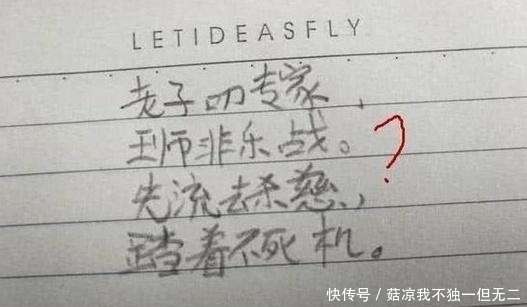 LETIDEASFLY
老子叨专家,
王师非乐战。
先流去杀慈,
着不死机。
?
快传号/菇凉我不独一但无二